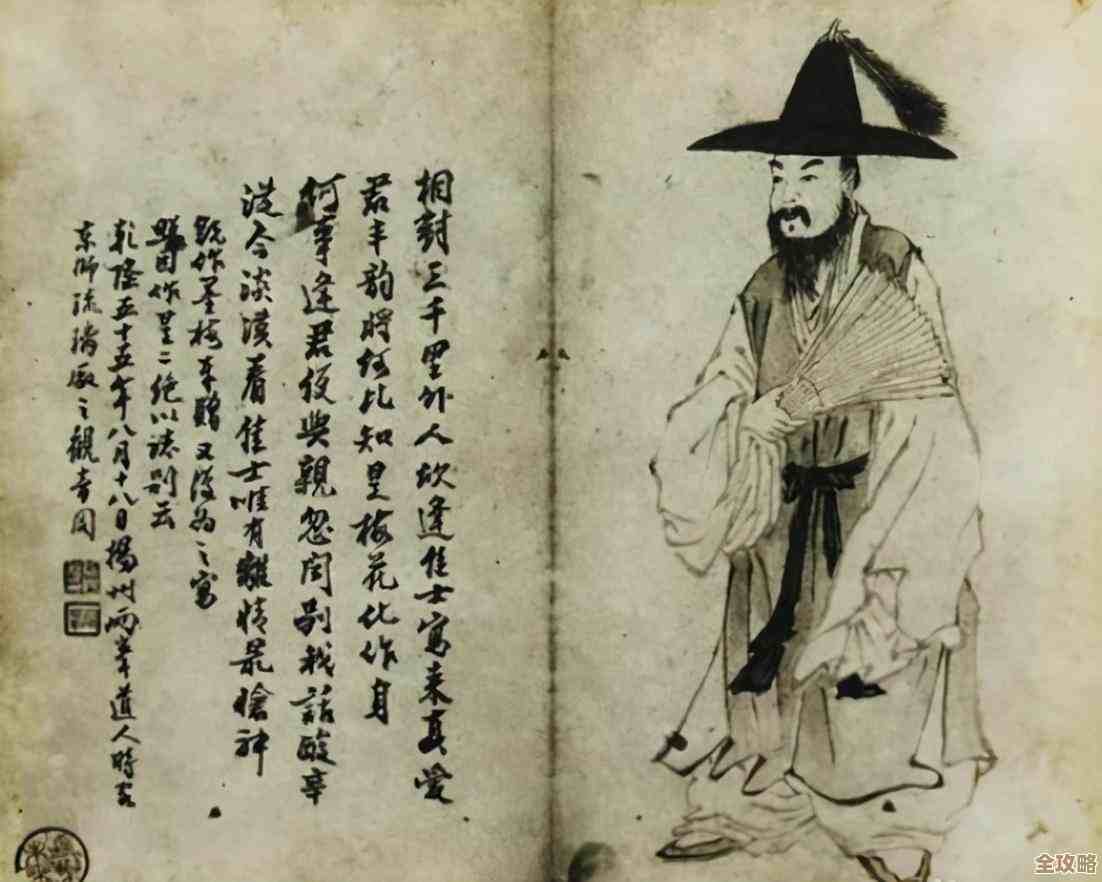 相對三千里外人欣逢佳士寫來真愛
君丰韻將何比知是梅花化作身
何事逢君便與親忽聞別我話酸辛
從今淡漠看佳士唯有離情最愴神
既作墨梅奉贈又復為之寫
照因作是二絕以誌別云
乾隆五十五年八月十八日揚州兩峯道人時客
京師琉璃廠之觀音閣
全攻略